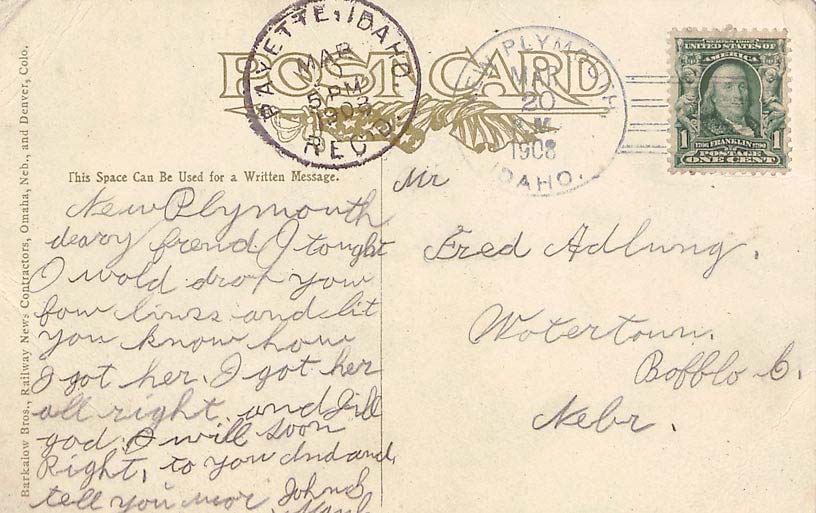 POST CARD
PAYETTE, IDAHO.
MAR
5 PM
1908
REC'D.
NEW PLYMOUTH,
MAR
20
M
1908
IDAHO.
SERIES 1902
UNITED STATES OF AMERICA
1
1706 FRANKLIN 1790
POSTAGE
ONE CENT
Barkalow Bros., Railway News Contractors, Omaha, Neb., and Denver, Colo.
This Space Can Be Used for a Written Message.
New Plymouth
deary frend. I tought
I wold drop you
fow lines and lit
you know how
I got her. I got her
all right. and Fill
god. I will soon
Right, to you and and
tell you mor. John S.
Mr
Fred Adlung.
Wotertown.
Bofflo C.
Nebr.